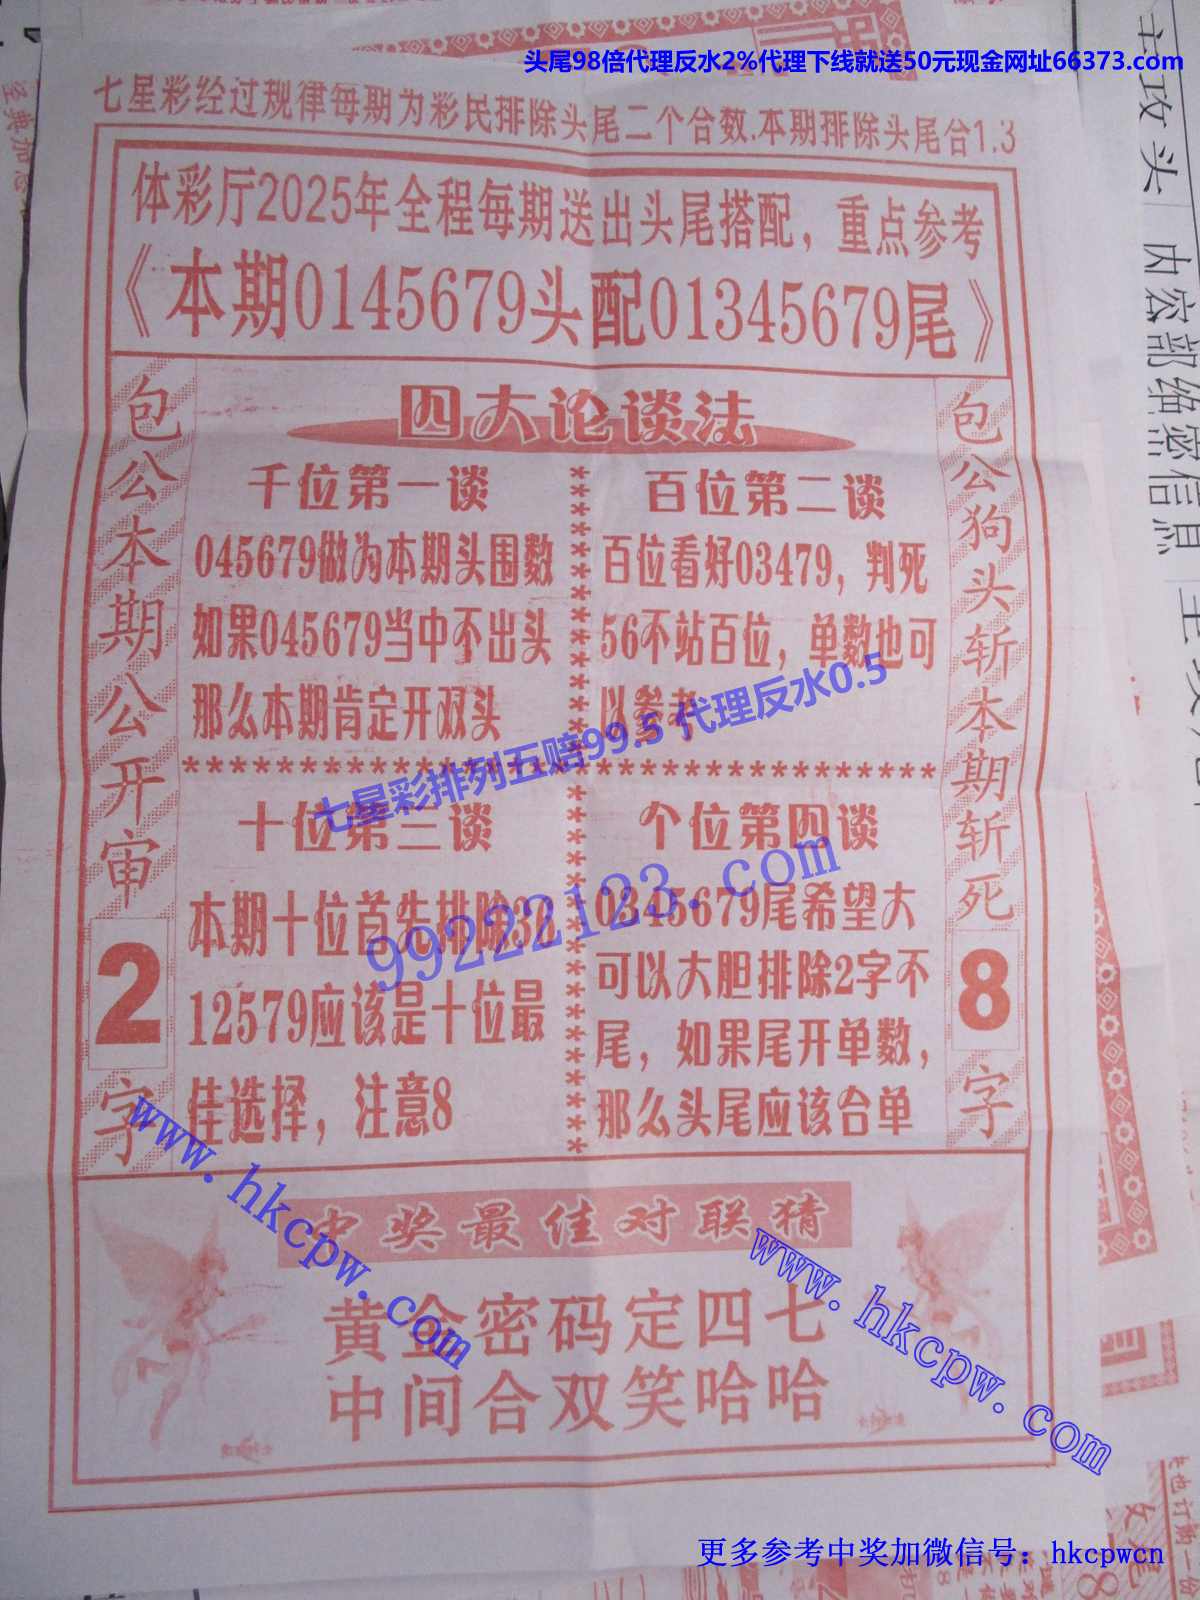 头尾98倍代理反水2%代理下线就送50元现金网址66373.com
七星彩经过规律每期为彩民排除头尾二个合数.本期排除头尾合1.3
体彩厅2025年全程每期送出头尾搭配，重点参考
《本期0145679头配01345679尾》
四大论谈法
包公本期公开审
2
字
千位第一谈
045679做为本期头围数
如果045679当中不出头
那么本期肯定开双头
百位第二谈
百位看好03479，判死
56不站百位，单数也可
以参考
七星彩排列五赔99.5 代理反水0.5
十位第三谈
本期十位首先排除
12579应该是十位最
佳选择，注意8
个位第四谈
0345679尾希望大
可以大胆排除2字不
尾，如果尾开单数，
那么头尾应该合单
99222123.com
包公狗头斩本期斩死
8
字
中奖最佳对联猜
黄金密码定四七
中间合双笑哈哈
www.hkcpw.com
www.hkcpw.com
更多参考中奖加微信号：hkcpwcn
主攻头
内宏部绝密信息